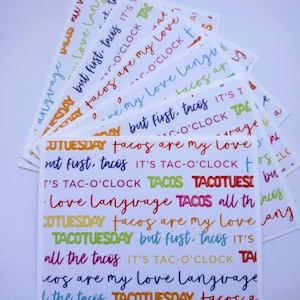 language
tacos
love language
but first, tacos
IT'S TAC-O'CLOCK
TACOTUESDAY
tacos are my love
TACOS
my love language
but first, tacos TAC
TAC-O'CLOCK
COTUESDAY tacos are my love
but first, tacos IT'S TAC-O'CLOCK
T'S TAC-O'CLOCK TACOS TACOTUESD
love language TACOS all th
COTUESDAY tacos are my love
TACOTUESDAY but first, tacos IT'S
all the tacos IT'S TAC-O'CLOCK TA
cos are my love language
ll the tacos TACOTUESDAY tacos a